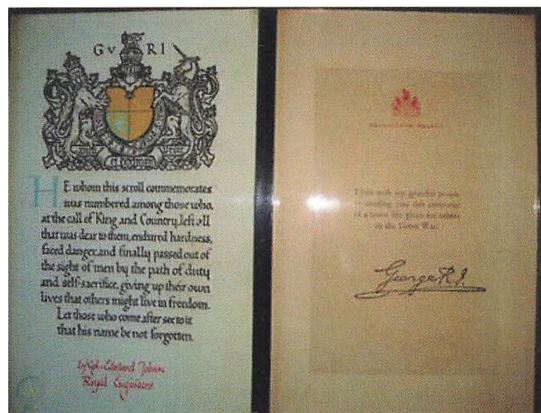 GvRI
HE whom this scroll commemorates
was numbered among those who,
at the call of King and Country, left all
that was dear to them, endured hardness,
faced danger, and finally passed out of
the sight of men by the path of duty
and self-sacrifice, giving up their own
lives that others might live in freedom.
Let those who come after see to it
that his name be not forgotten.
Edward
Royal Engineers
BUCKINGHAM PALACE
I join with my grateful people
in sending you this memorial
of a brave life given for others
in the Great War.
George R.I.